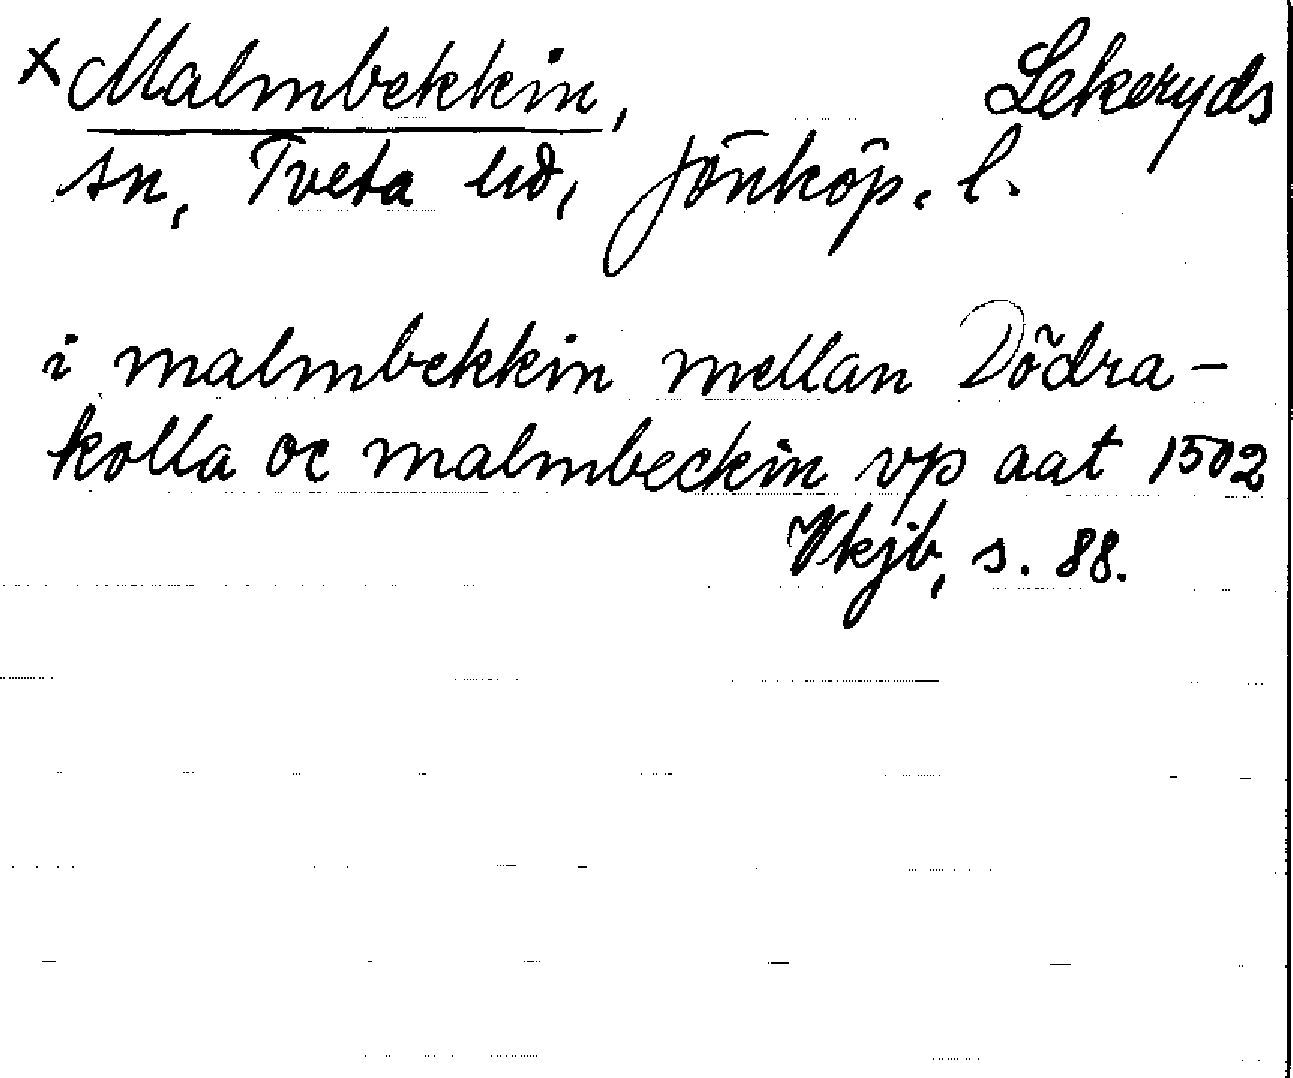 x Malmbekkin, Lekeryds
sn, Tveta hd, Jönköp. l.
i malmbekkin mellan Dödra-
kolla oc malmbeckin vp aat 1502
Vkjb, s. 88.